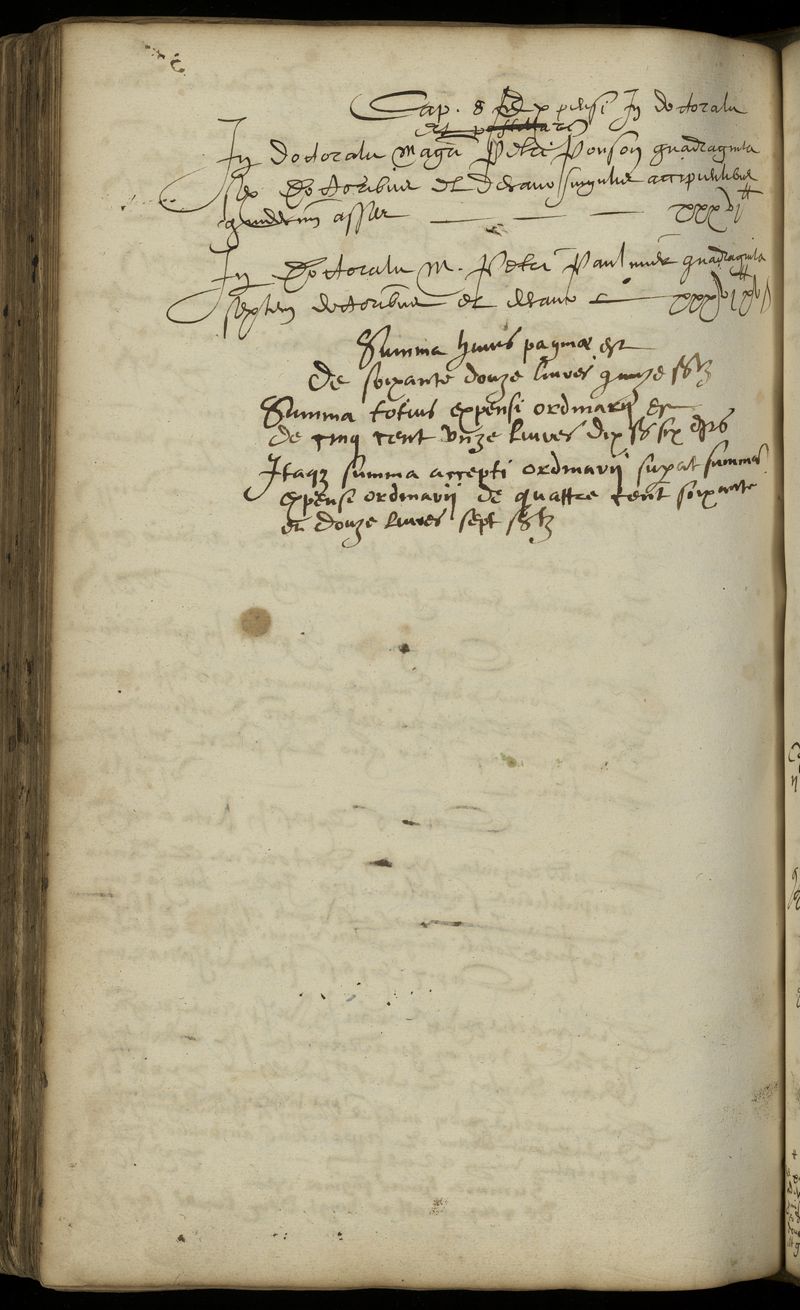 Cap. 8 Expensi In doctoralu
In doctoralu magri Petri Ponson quadraginta
sex doctoribus et decano singulis accipientibus
asses xxxvi ℔
In doctoralu M. Petri Paulmier quadraginta
septem doctoribus et decano xxxvi ℔
Summa huius paginæ est
De soixante douze livres quinze ss tz
Summa totius expensi ordinarij est
de cinq cent unze livres dix ss six ds
Itaqz summa accepti ordinarij supat summas
expensi ordinarij de quattre cent soixante
et douze livres sept ss tz